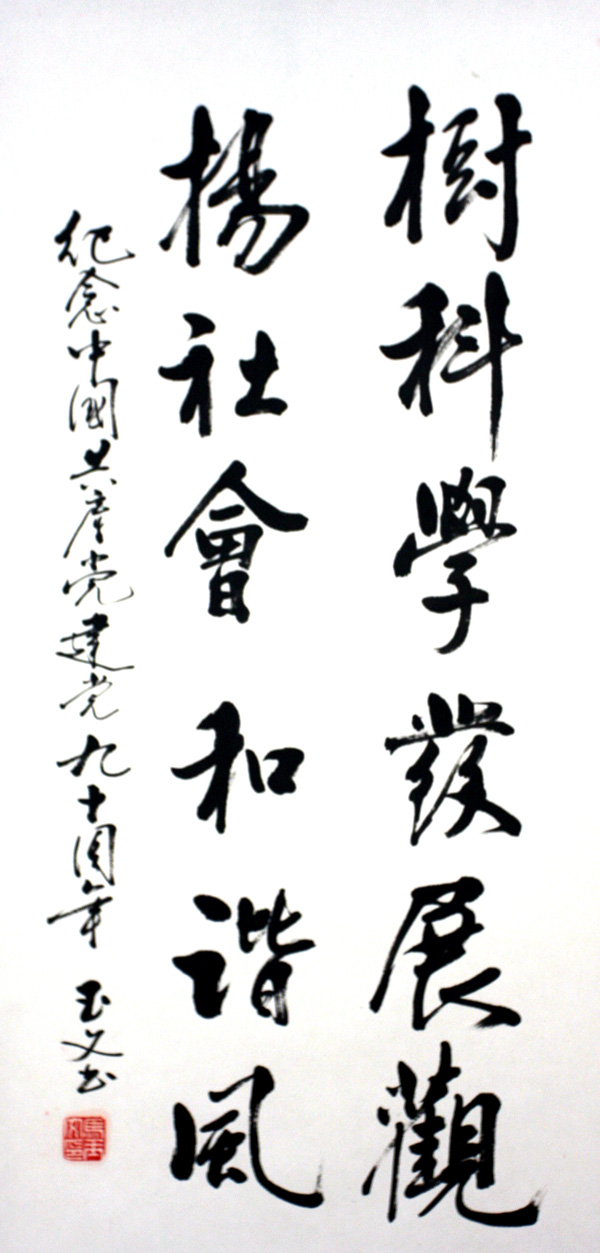 樹科學發展觀
揚社會和諧風
纪念中國共產党建党九十周年 玉文书